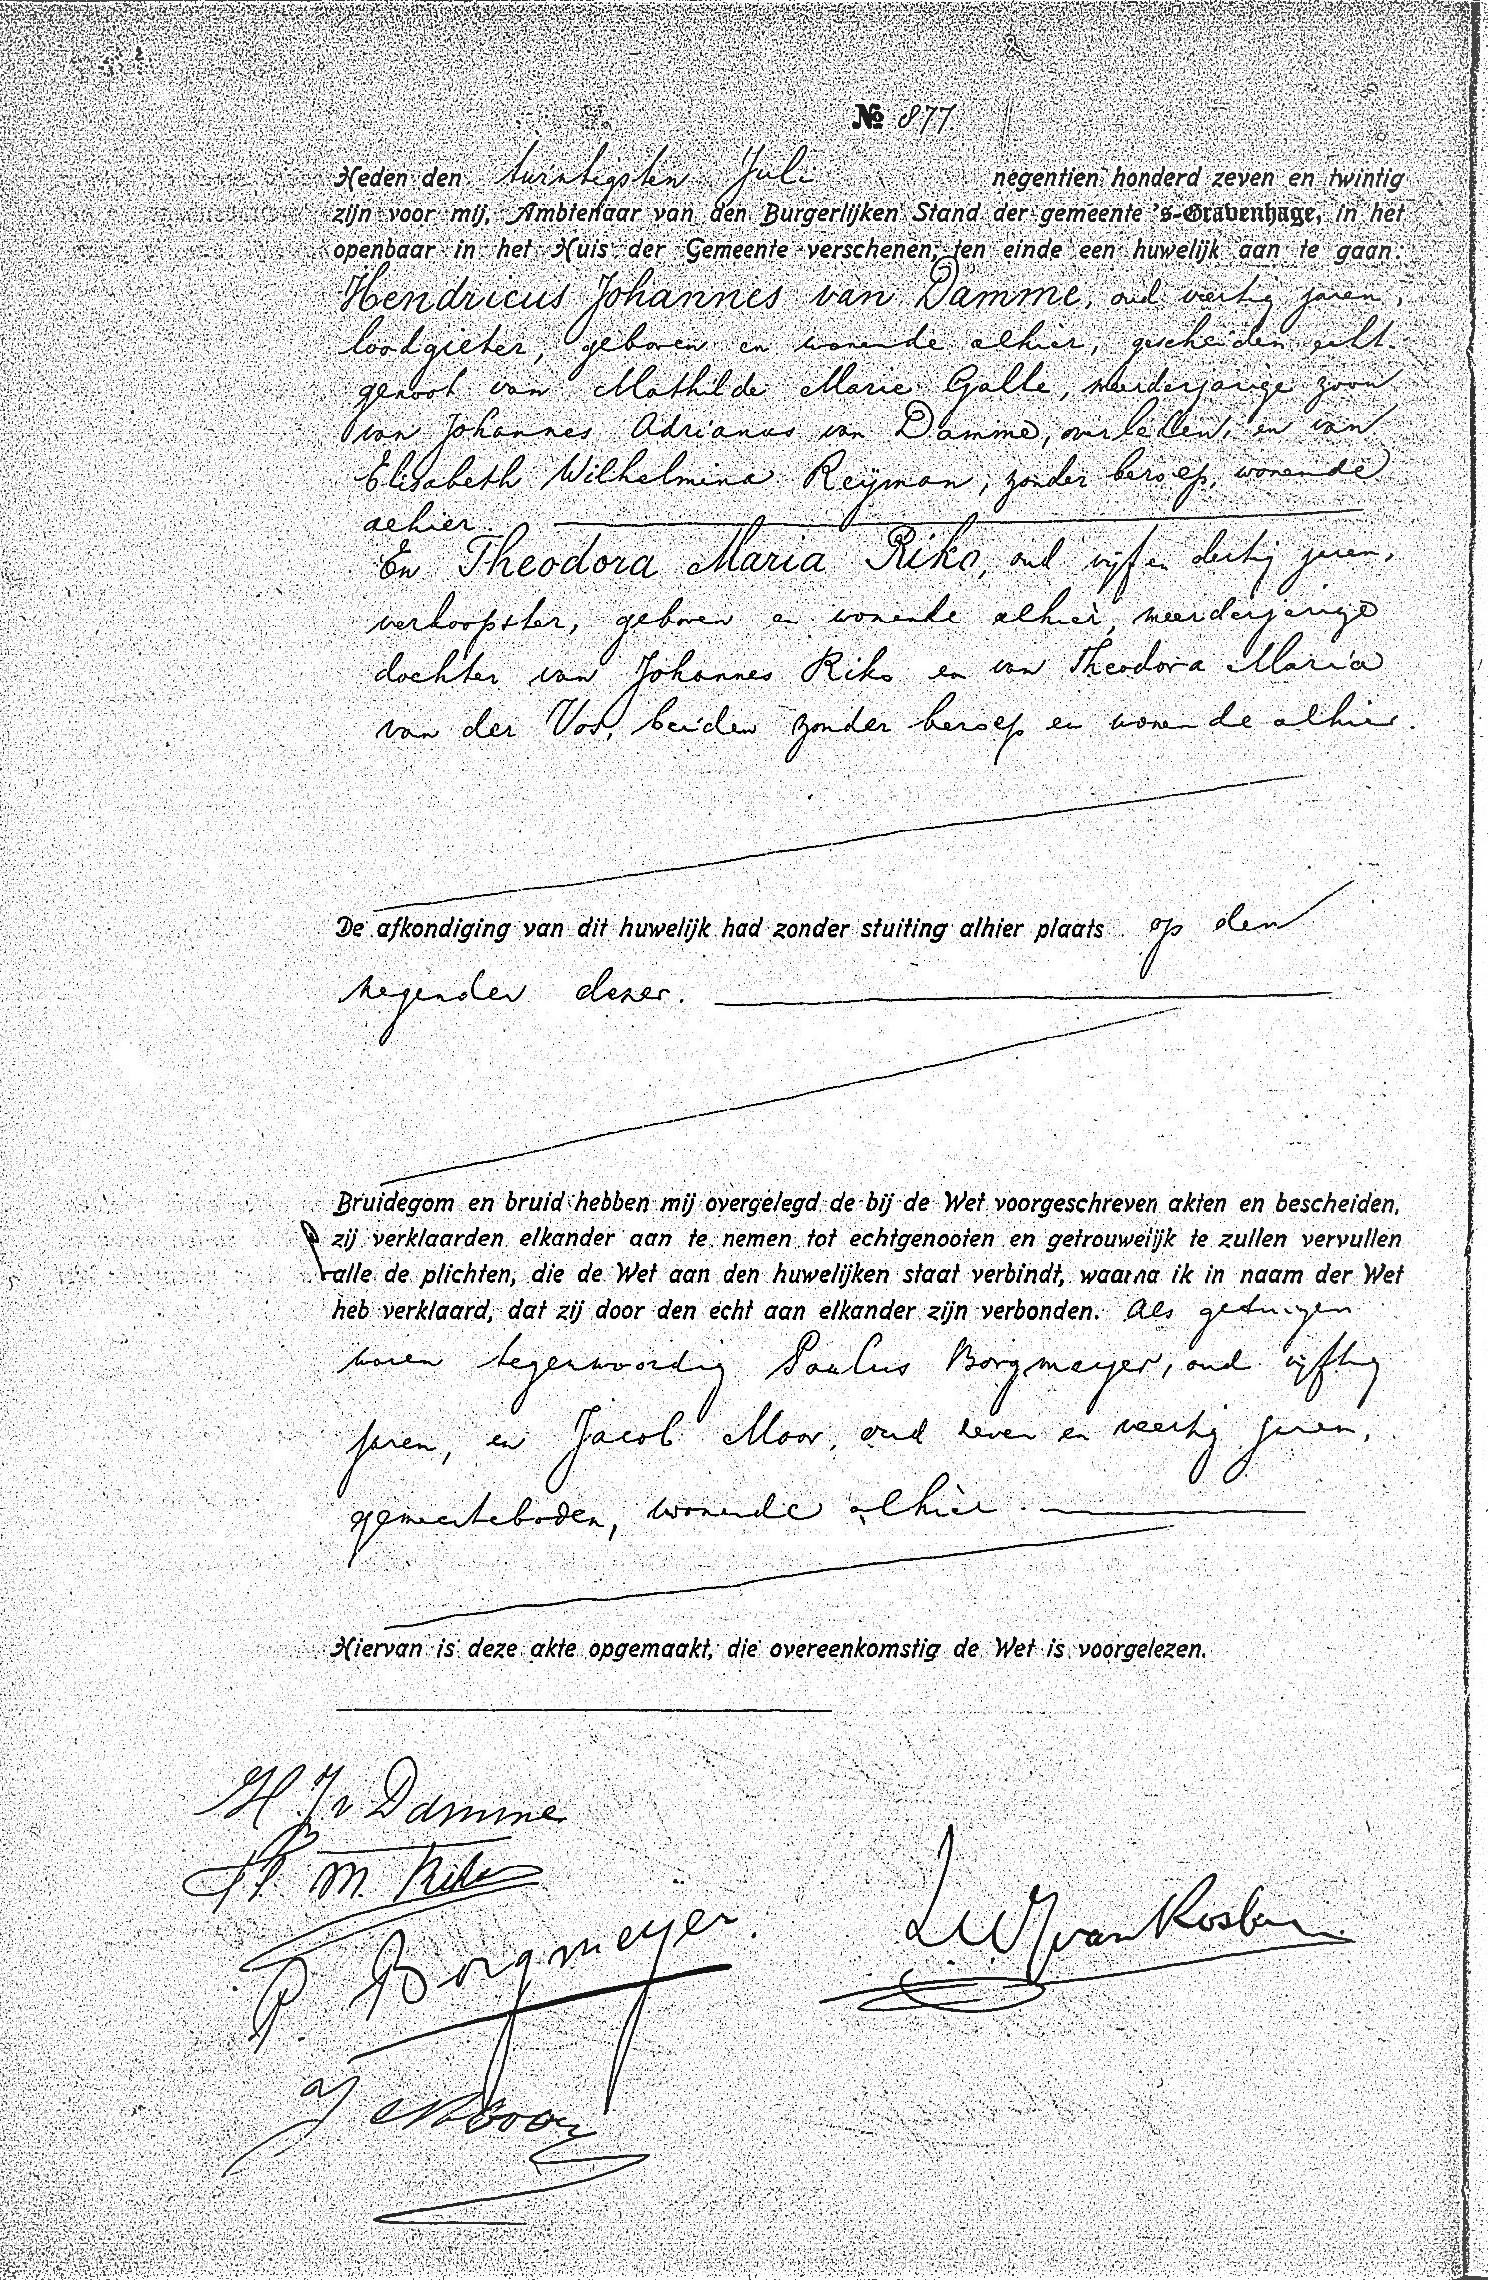 № 877
Heden den twintigsten Juli negentien honderd zeven en twintig
zijn voor mij, Ambtenaar van den Burgerlijken Stand der gemeente 's-Gravenhage, in het
openbaar in het Huis der Gemeente verschenen, ten einde een huwelijk aan te gaan:
Hendricus Johannes van Damme, oud veertig jaren,
loodgieter, geboren en wonende alhier, gescheiden echt-
genoot van Mathilde Marie Galle, meerderjarige zoon
van Johannes Adrianus van Damme, overleden, en van
Elisabeth Wilhelmina Reijman, zonder beroep, wonende
alhier.
En Theodora Maria Riko, oud vijf en dertig jaren,
verkoopster, geboren en wonende alhier, meerderjarige
dochter van Johannes Riko en van Theodora Maria
van der Vos, beiden zonder beroep en wonende alhier.
De afkondiging van dit huwelijk had zonder stuiting alhier plaats op den
negenden dezer.
Bruidegom en bruid hebben mij overgelegd de bij de Wet voorgeschreven akten en bescheiden,
zij verklaarden elkander aan te nemen tot echtgenooten en getrouwelijk te zullen vervullen
alle de plichten, die de Wet aan den huwelijken staat verbindt, waarna ik in naam der Wet
heb verklaard, dat zij door den echt aan elkander zijn verbonden. Als getuigen
waren tegenwoordig Paulus Borgmeyer, oud vijftig
jaren, en Jacob Moor, oud zeven en veertig jaren,
gemeenteboden, wonende alhier
Hiervan is deze akte opgemaakt, die overeenkomstig de Wet is voorgelezen.
H. J v Damme
Th. M. Riko
P. Borgmeyer.
J Moor
van